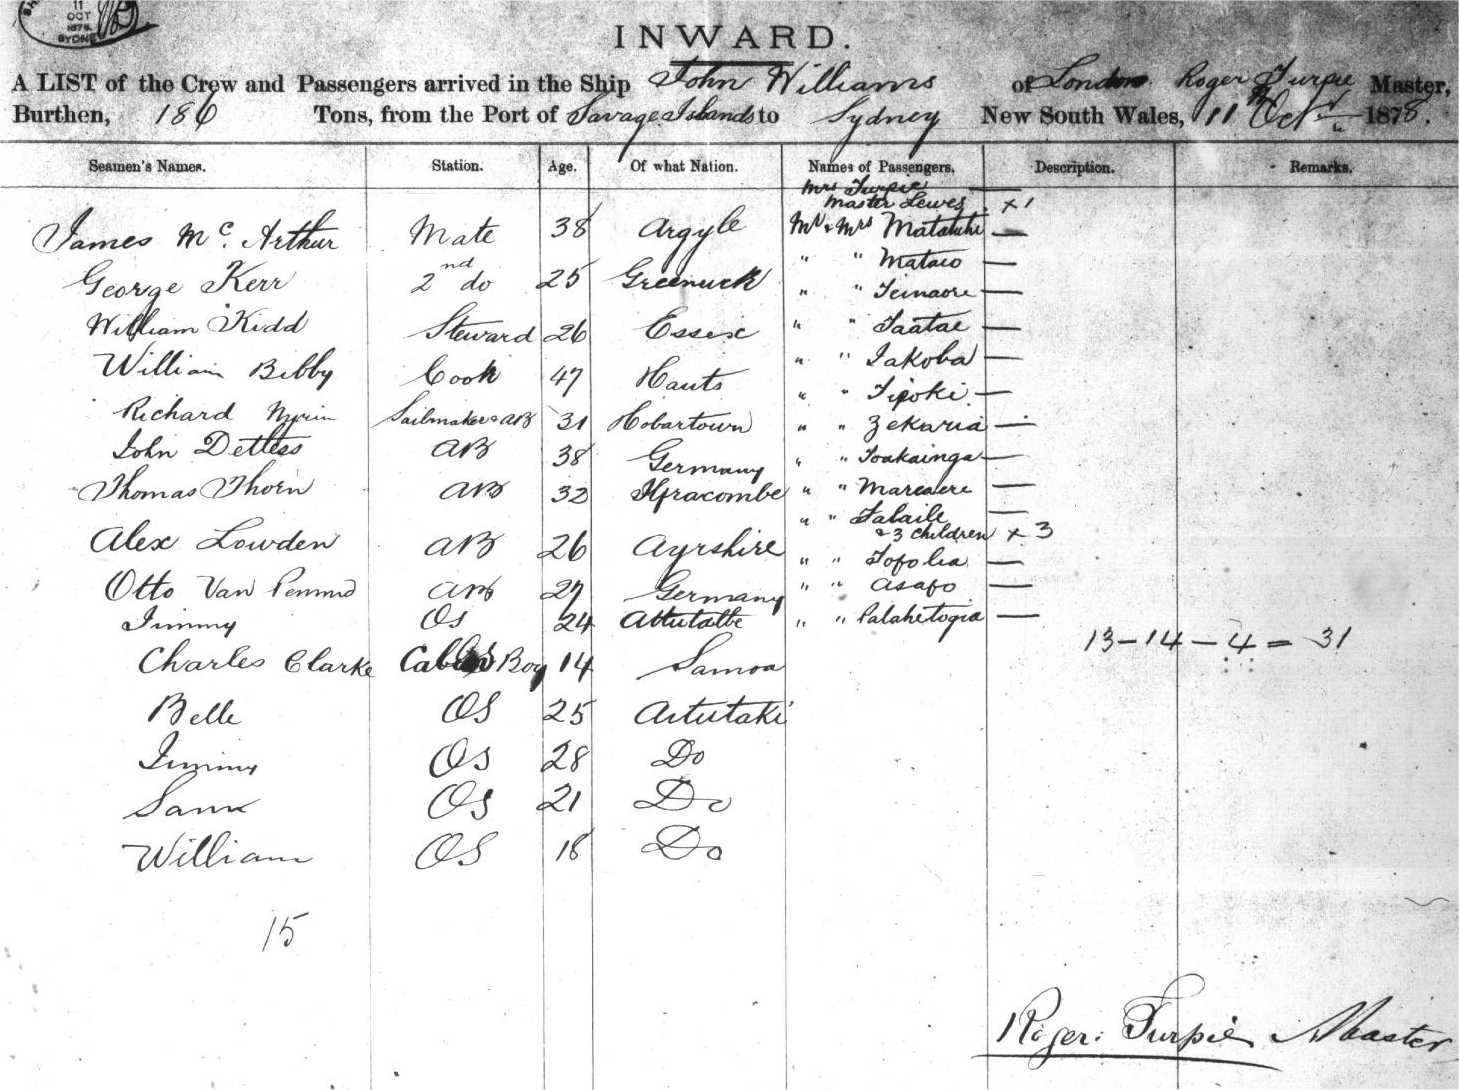 11
OCT
1878
SYDNEY
INWARD.
A LIST of the Crew and Passengers arrived in the Ship John Williams of London Roger Turpie Master,
Burthen, 186 Tons, from the Port of Savage Islands to Sydney New South Wales, 11 Oct 1878.
Seamen's Names. Station. Age. Of what Nation. Names of Passengers. Description. Remarks.
Mrs Turpie —
Master Lewes × 1
James Mc. Arthur Mate 38 Argyle Mr & Mrs —
George Kerr 2nd do 25 Greenuck " " Mataio —
" " Teinaore —
William Kidd Steward 26 Essex " " Taatae —
William Bibby Cook 47 Hants " " Iakoba —
" " Tipoki —
Richard Sailmaker & AB 31 Hobartown " " Zekaria —
John Detless AB 38 Germany " " Toakainga —
Thomas Thorn AB 32 Ilfracombe " " —
" " Falaile —
& 3 children × 3
Alex Lowden AB 26 Ayrshire " " Tofolia —
Otto Van AB 27 Germany " " Asafo —
Jimmy OS 24 " " Palahetogia —
13 – 14 – 4 = 31
Charles Clarke Boy 14 Samoa
Belle OS 25 Aitutaki
Jimmy OS 28 Do
Sam OS 21 Do
William OS 18 Do
15
Roger Turpie Master